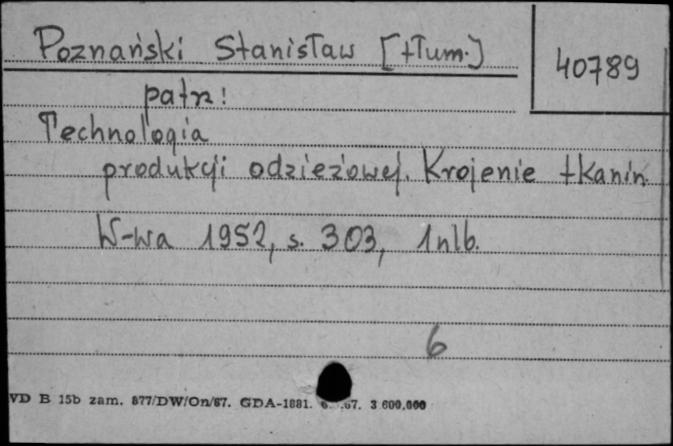 Poznański Stanisław [tłum.]
40789
patrz:
Technologia
produkcji odzieżowej. Krojenie tkanin.
W-wa 1952, s. 303, 1 nlb.
6
VD B 15b zam. 877/DW/On/67. GDA-1881. 67. 3 600.000